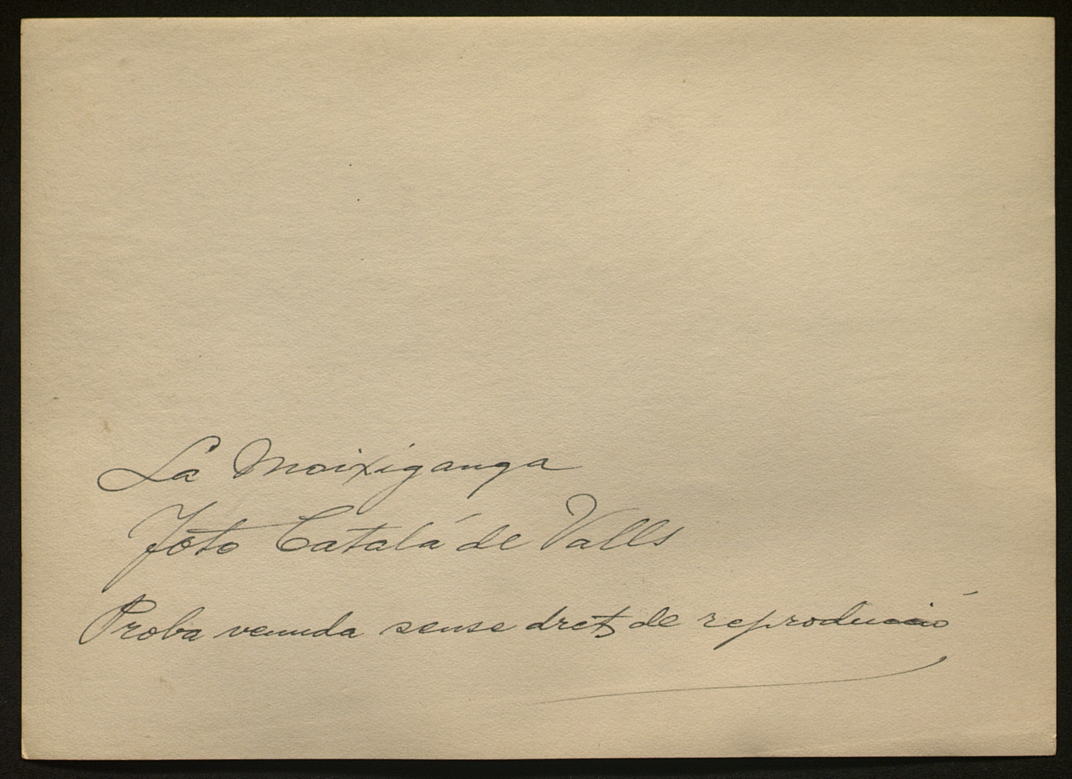 La Moixiganga
Foto Catalá de Valls
Proba venuda sense dret de reproducció